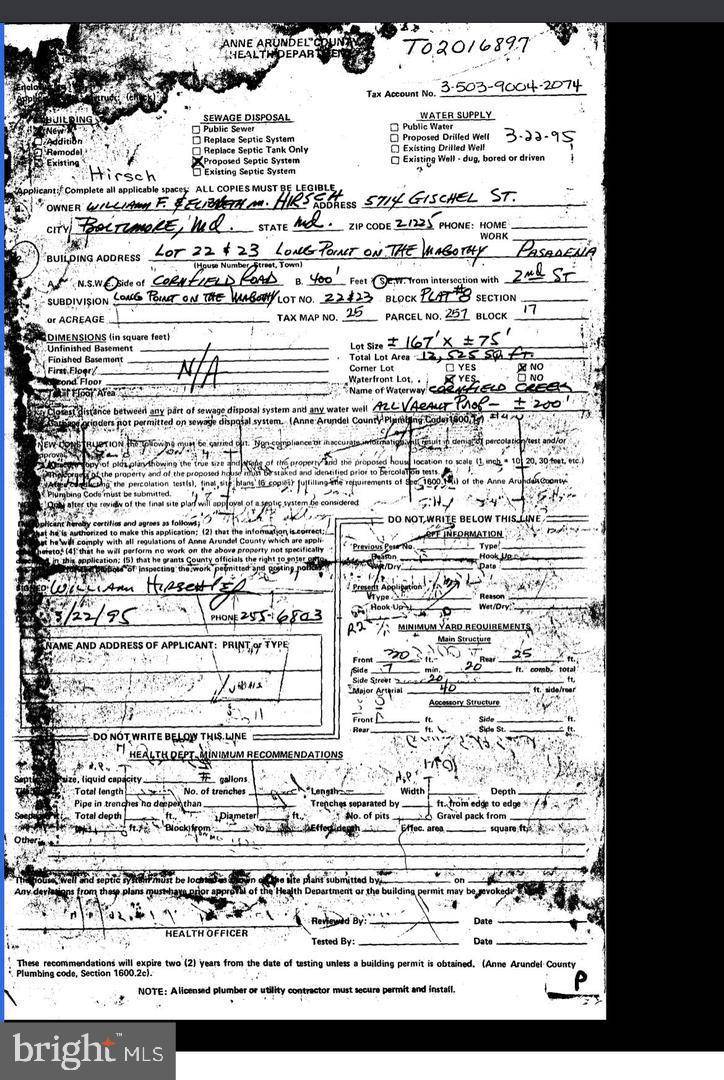 ANNE ARUNDEL COUNTY
HEALTH DEPARTMENT
T02016897
Tax Account No. 3-503-9004-2074
BUILDING
New
Addition
Remodel
Existing
SEWAGE DISPOSAL
Public Sewer
Replace Septic System
Replace Septic Tank Only
Proposed Septic System
Existing Septic System
WATER SUPPLY
Public Water
Proposed Drilled Well
Existing Drilled Well
Existing Well - dug, bored or driven
3-22-95
Hirsch
Applicant: Complete all applicable spaces. ALL COPIES MUST BE LEGIBLE
OWNER WILLIAM F. & ELIZABETH M. HIRSCH ADDRESS 5714 GISCHEL ST.
CITY BALTIMORE, MD. STATE Md. ZIP CODE 21225 PHONE: HOME
WORK
BUILDING ADDRESS LOT 22 & 23 LONG POINT ON THE MAGOTHY PASADENA
(House Number, Street, Town)
A. N.S.W.E. Side of CORNFIELD ROAD B. 400' Feet N.S.E.W. from intersection with 2nd ST
SUBDIVISION LONG POINT ON THE MAGOTHY LOT NO. 22 & 23 BLOCK PLAT #8 SECTION
or ACREAGE TAX MAP NO. 25 PARCEL NO. 257 BLOCK 17
DIMENSIONS (in square feet)
Unfinished Basement
Finished Basement
First Floor
Second Floor
Total Floor Area
N/A
Lot Size ± 167' X ± 75'
Total Lot Area 12,525 SQ. FT.
Corner Lot YES NO
Waterfront Lot YES NO
Name of Waterway CORNFIELD CREEK
Closest distance between any part of sewage disposal system and any water well ALL VACANT PROP - ± 200'
Garbage grinders not permitted on sewage disposal system. (Anne Arundel County Plumbing Code
NEW CONSTRUCTION the following must be carried out. Non-compliance or inaccurate information will result in denial of percolation test and/or
approval.
copy of plot plan showing the true size and shape of the property and the proposed house location to scale (1 inch = 10, 20, 30 feet, etc.)
corners of the property and of the proposed house must be staked and identified prior to percolation tests.
After conducting the percolation test(s), final site plans (6 copies) fulfilling the requirements of Sec. 1600. of the Anne Arundel County
Plumbing Code must be submitted.
Only after the review of the final site plan will approval of a septic system be considered
The applicant hereby certifies and agrees as follows:
that he is authorized to make this application; (2) that the information is correct;
that he will comply with all regulations of Anne Arundel County which are appli-
hereto; (4) that he will perform no work on the above property not specifically
described in this application; (5) that he grants County officials the right to enter
purpose of inspecting the work permitted and posting notices.
SIGNED WILLIAM HIRSCH
3/22/95 PHONE 255-6803
NAME AND ADDRESS OF APPLICANT: PRINT or TYPE
DO NOT WRITE BELOW THIS LINE
INFORMATION
Previous Perc No. Type
Reason Hook Up
Wet/Dry Date
Present Application
Type Reason
Hook Up Wet/Dry
R2
MINIMUM YARD REQUIREMENTS
Main Structure
Front 30 ft. Rear 25 ft.
Side 7 min. 20 ft. comb. total
Side Street 20 ft.
Major Arterial 40 ft. side/rear
Accessory Structure
Front ft. Side ft.
Rear ft. Side St. ft.
DO NOT WRITE BELOW THIS LINE
HEALTH DEPT. MINIMUM RECOMMENDATIONS
size, liquid capacity gallons
Total length No. of trenches Length Width Depth
Pipe in trenches no deeper than Trenches separated by ft. from edge to edge
Total depth ft. Diameter ft. No. of pits Gravel pack from
ft. Block from to Effec. depth Effec. area square ft.
Other
The house, well and septic system must be located as shown on the site plans submitted by on
Any deviations from these plans must have prior approval of the Health Department or the building permit may be revoked.
HEALTH OFFICER
Reviewed By: Date
Tested By: Date
These recommendations will expire two (2) years from the date of testing unless a building permit is obtained. (Anne Arundel County
Plumbing code, Section 1600.2c).
NOTE: A licensed plumber or utility contractor must secure permit and install.
P
bright MLS